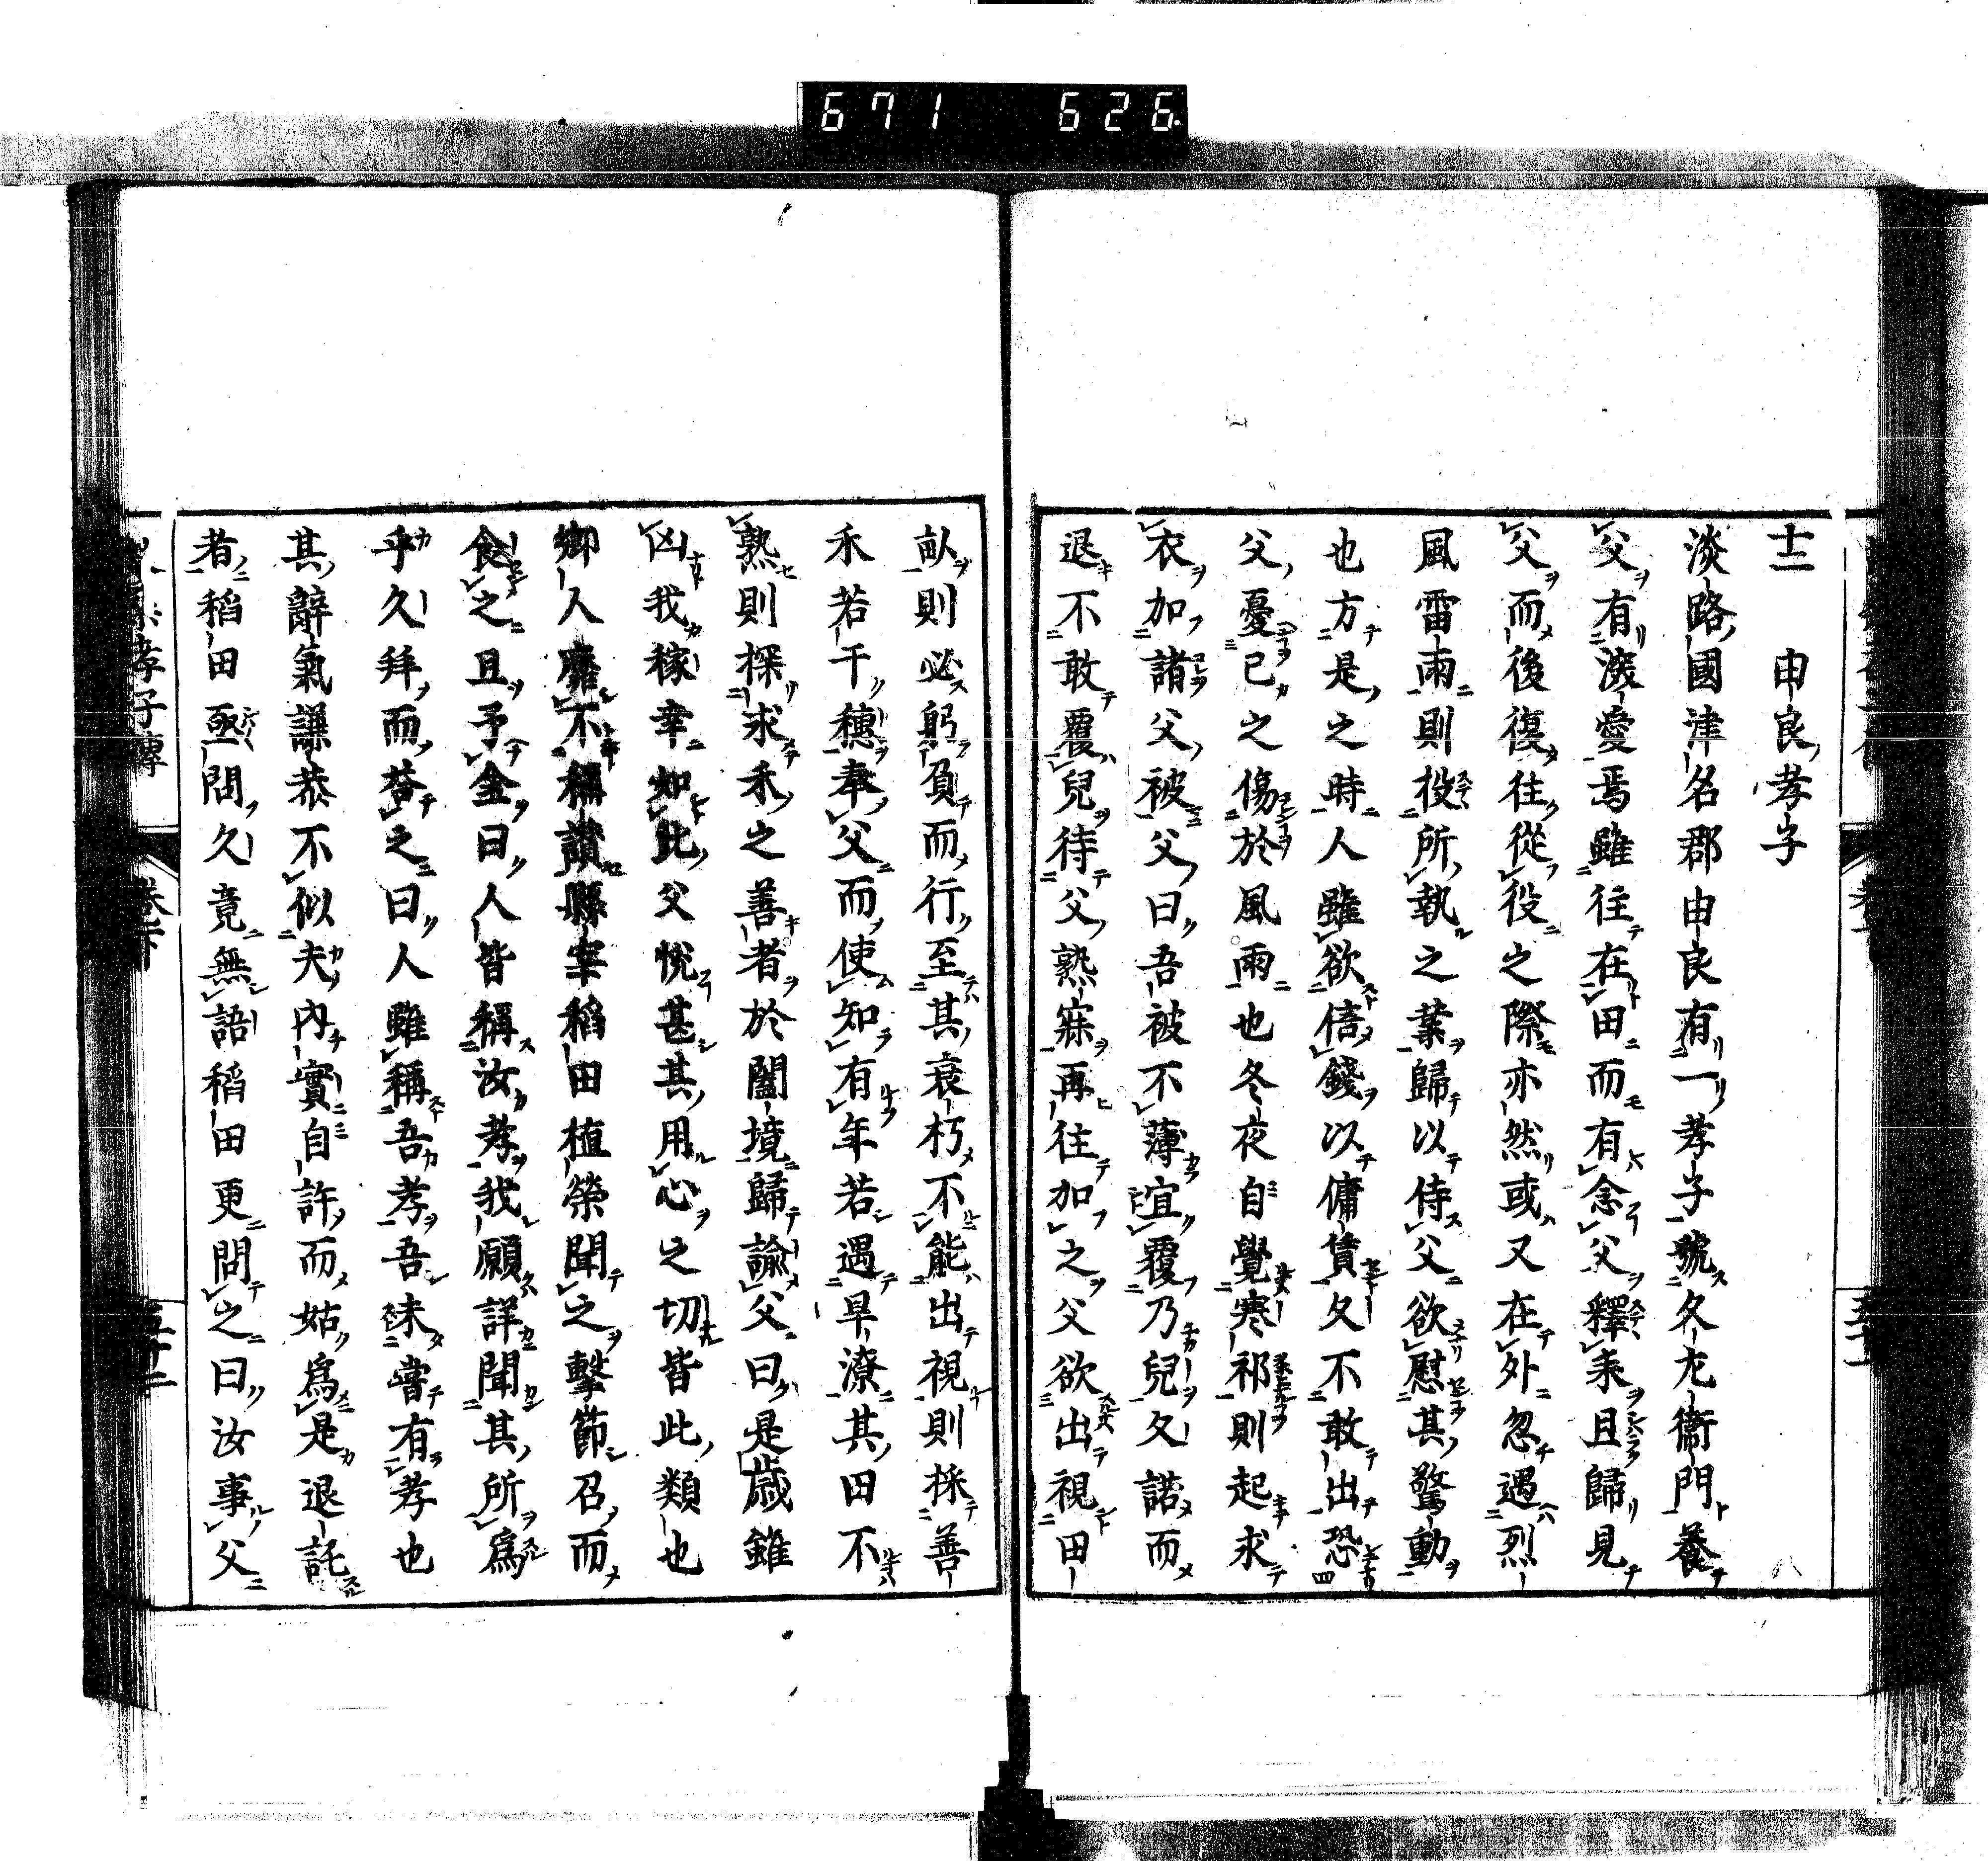 671 626
十二 由良孝子
淡路國津名郡由良有一孝子號久左衞門養
父有深愛焉雖往在田而有念父釋耒且歸見
父而後復往從役之際亦然或又在外忽遇烈
風雷雨則投所執之業歸以侍父欲慰其驚動
也方是之時人雖欲倍錢以傭賃久不敢出恐
父憂己之傷於風雨也冬夜自覺寒祁則起求
衣加諸父被父曰吾被不薄宜覆乃兒久諾而
退不敢覆兒待父熟寐再往加之父欲出視田
畝則必躬負而行至其衰朽不能出視則採善
禾若干穗奉父而使知有年若遇旱潦其田不
熟則探求禾之善者於闔境歸諭父曰是歲雖
凶我稼幸如此父悅甚其用心之切皆此類也
鄉人靡不稱讃縣宰稻田植榮聞之擊節召而
食之且予金曰人皆稱汝孝我願詳聞其所爲
乎久拜而荅之曰人雖稱吾孝吾未嘗有孝也
其辭氣謙恭不似夫內實自許而姑爲是退託
者稻田亟問久竟無語稻田更問之曰汝事父
孝子傳 卷下 五十二